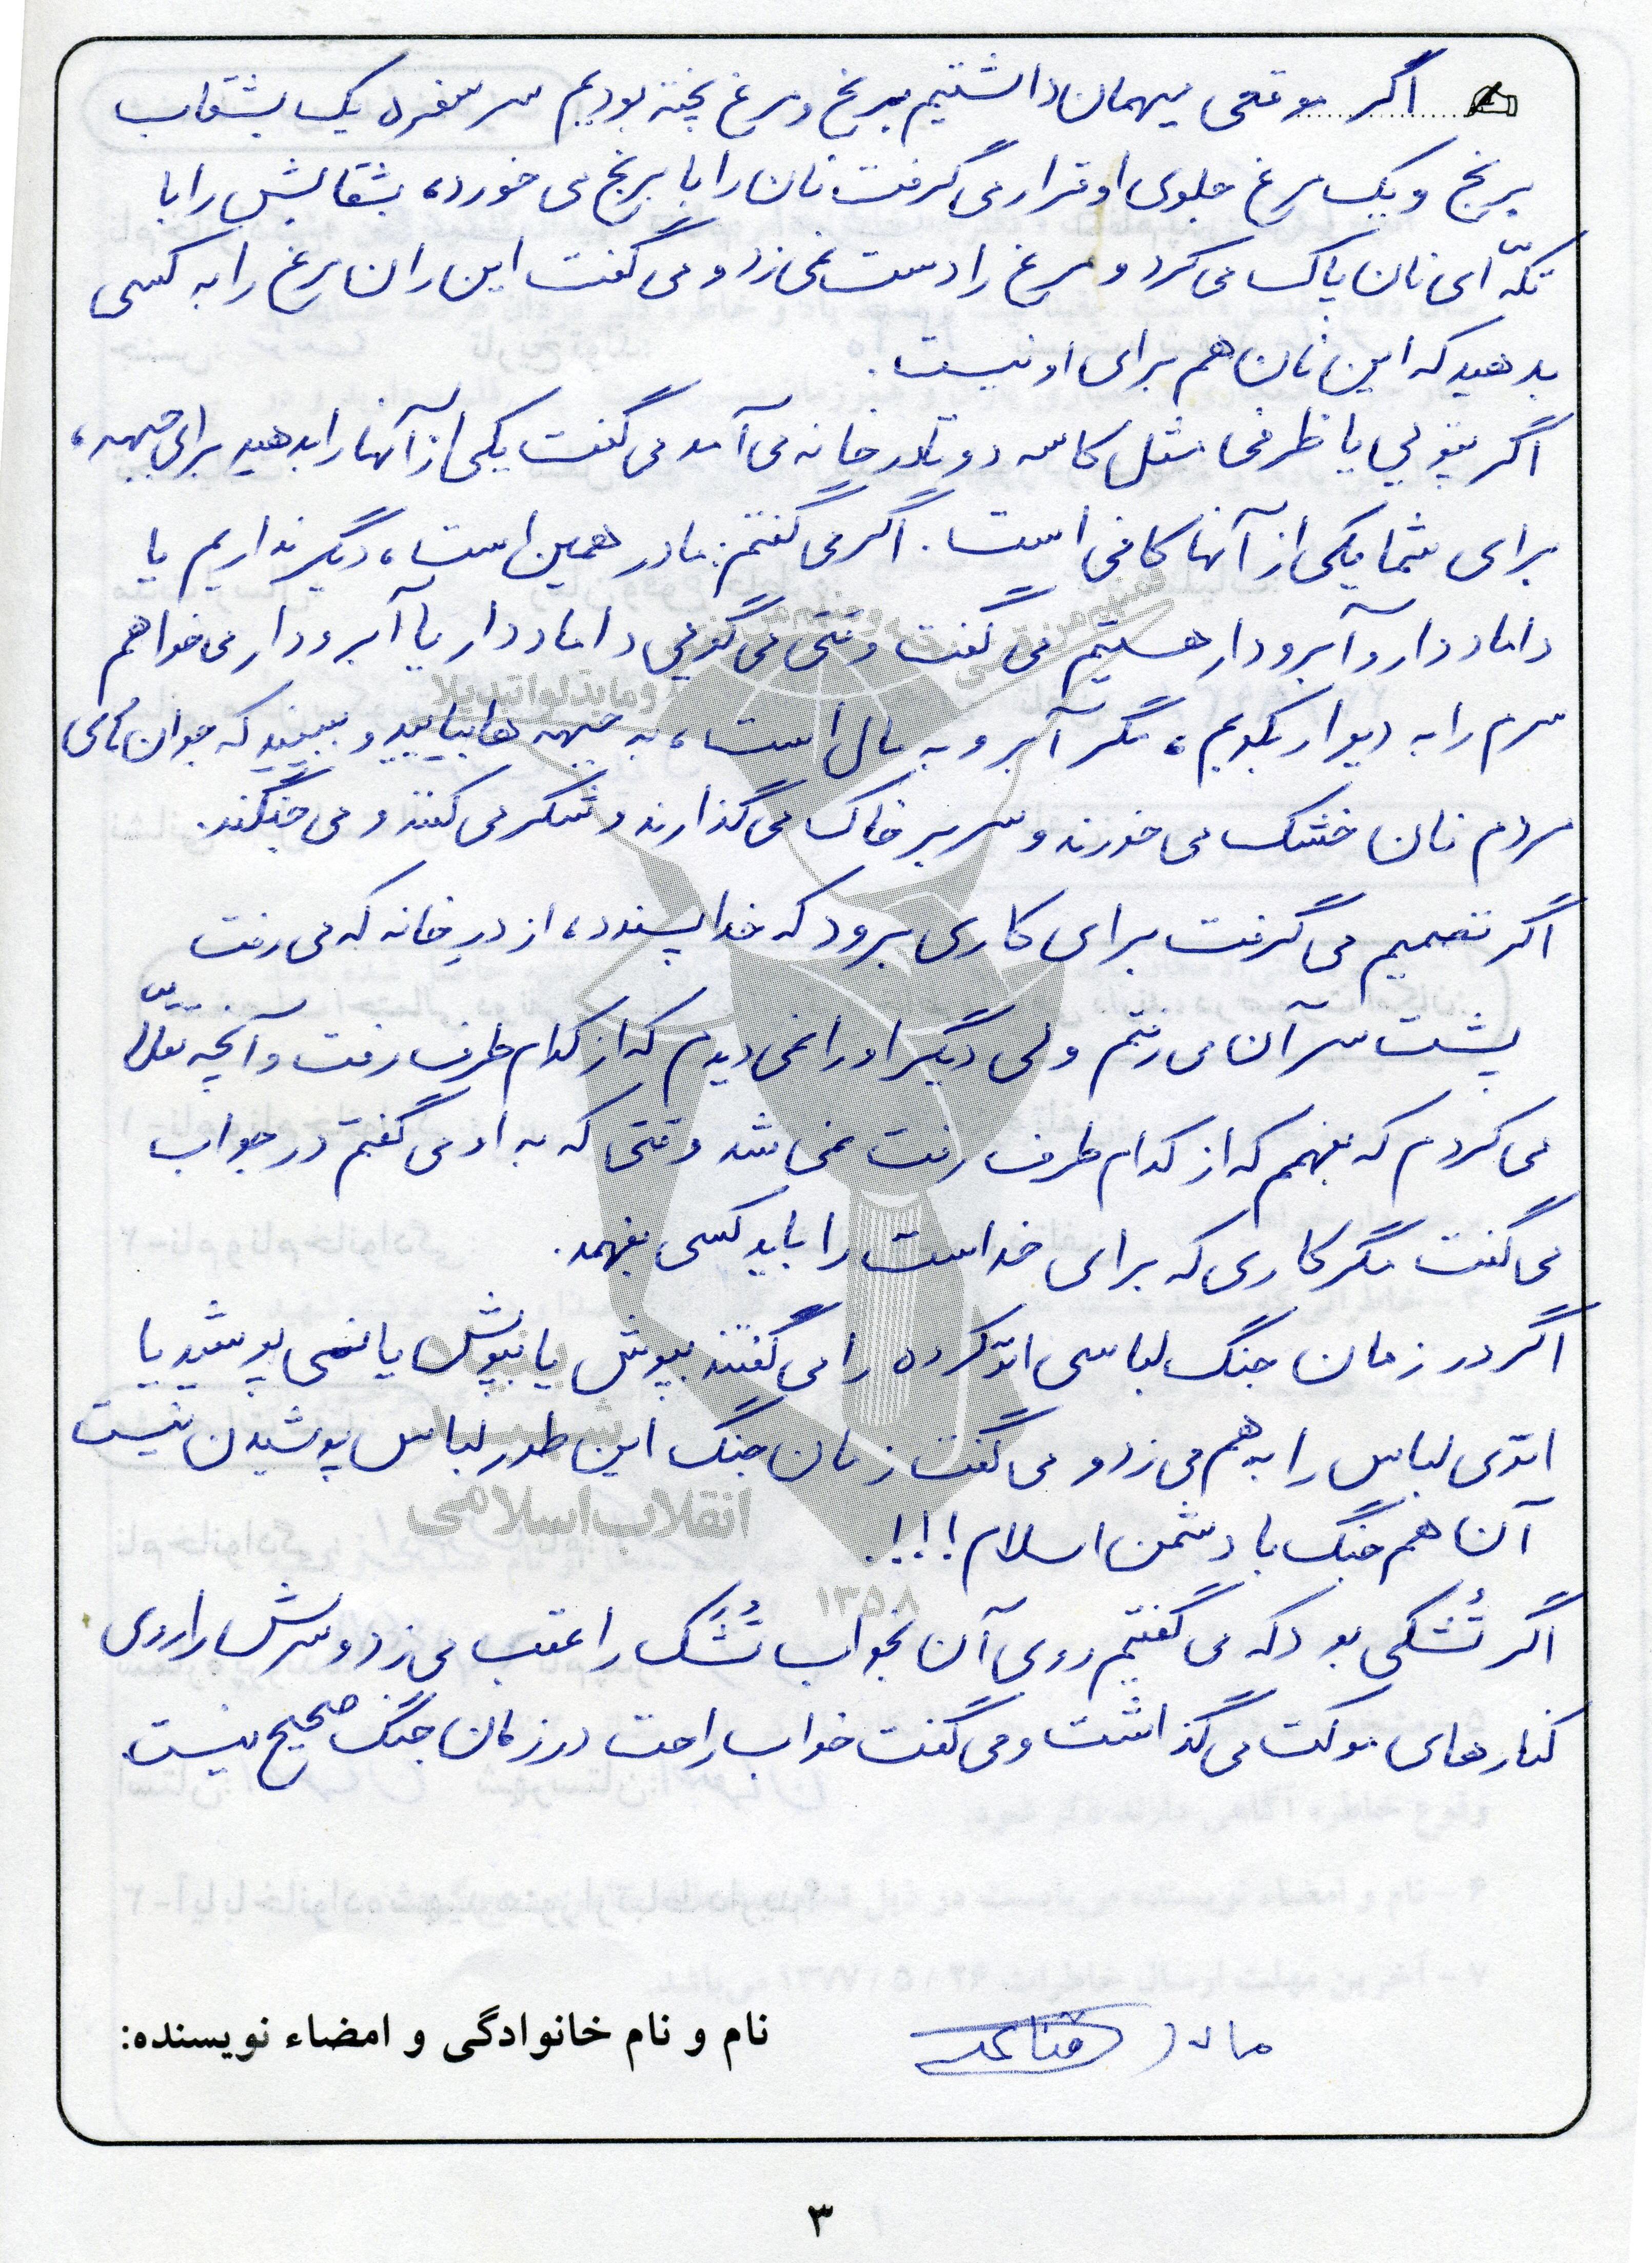 اگر موقعی میهمان داشتیم برنج و مرغ پخته بودیم سر سفره یک بشقاب
برنج و یک مرغ جلوی او قرار می گرفت نان را با برنج می خورد، بشقابش را با
تکّه ای نان پاک می کرد و مرغ را دست نمی زد و می گفت این ران مرغ را به کسی
بدهید که این نان هم برای او نیست.
اگر پتویی یا ظرفی مثل کاسه دو تا در خانه می آمد می گفت یکی از آنها را بدهید برای جبهه،
برای شما یکی از آنها کافی است. اگر می گفتم: مادر همین است، دیگر نداریم یا
داماد دار و آبرو دار هستیم می گفت وقتی می گویی داماد دار یا آبرو دار می خواهم
سرم را به دیوار بکوبم، مگر آبرو به مال است، به جبهه ها بیایید و ببینید که جوان های
مردم نان خشک می خورند و سر بر خاک می گذارند و شکر می کنند و می جنگند.
اگر تصمیم می گرفت برای کاری برود که خدا پسندد، از درِ خانه که می رفت
پشت سر آن می رفتم ولی دیگر او را نمی دیدم که از کدام طرف رفت و آنچه تقلّا
می کردم که بفهمم که از کدام طرف رفت نمی شد وقتی که به او می گفتم در جواب
می گفت مگر کاری که برای خداست را باید کسی بفهمد.
اگر در زمان جنگ لباسی اتو کرده را می گفتند بپوش یا نپوش یا نمی پوشید یا
اتوی لباس را به هم می زد و می گفت زمان جنگ این طور لباس پوشیدن نیست
آن هم جنگ با دشمن اسلام!!!.
اگر تُشکی بود که می گفتیم روی آن بخواب تُشَک را عقب می زد و سرش را روی
کنارهای موکت می گذاشت و می گفت خواب راحت در زمان جنگ صحیح نیست
انقلاب اسلامی
۱۳۵۸
نام و نام خانوادگی و امضاء نویسنده: مادر
۳